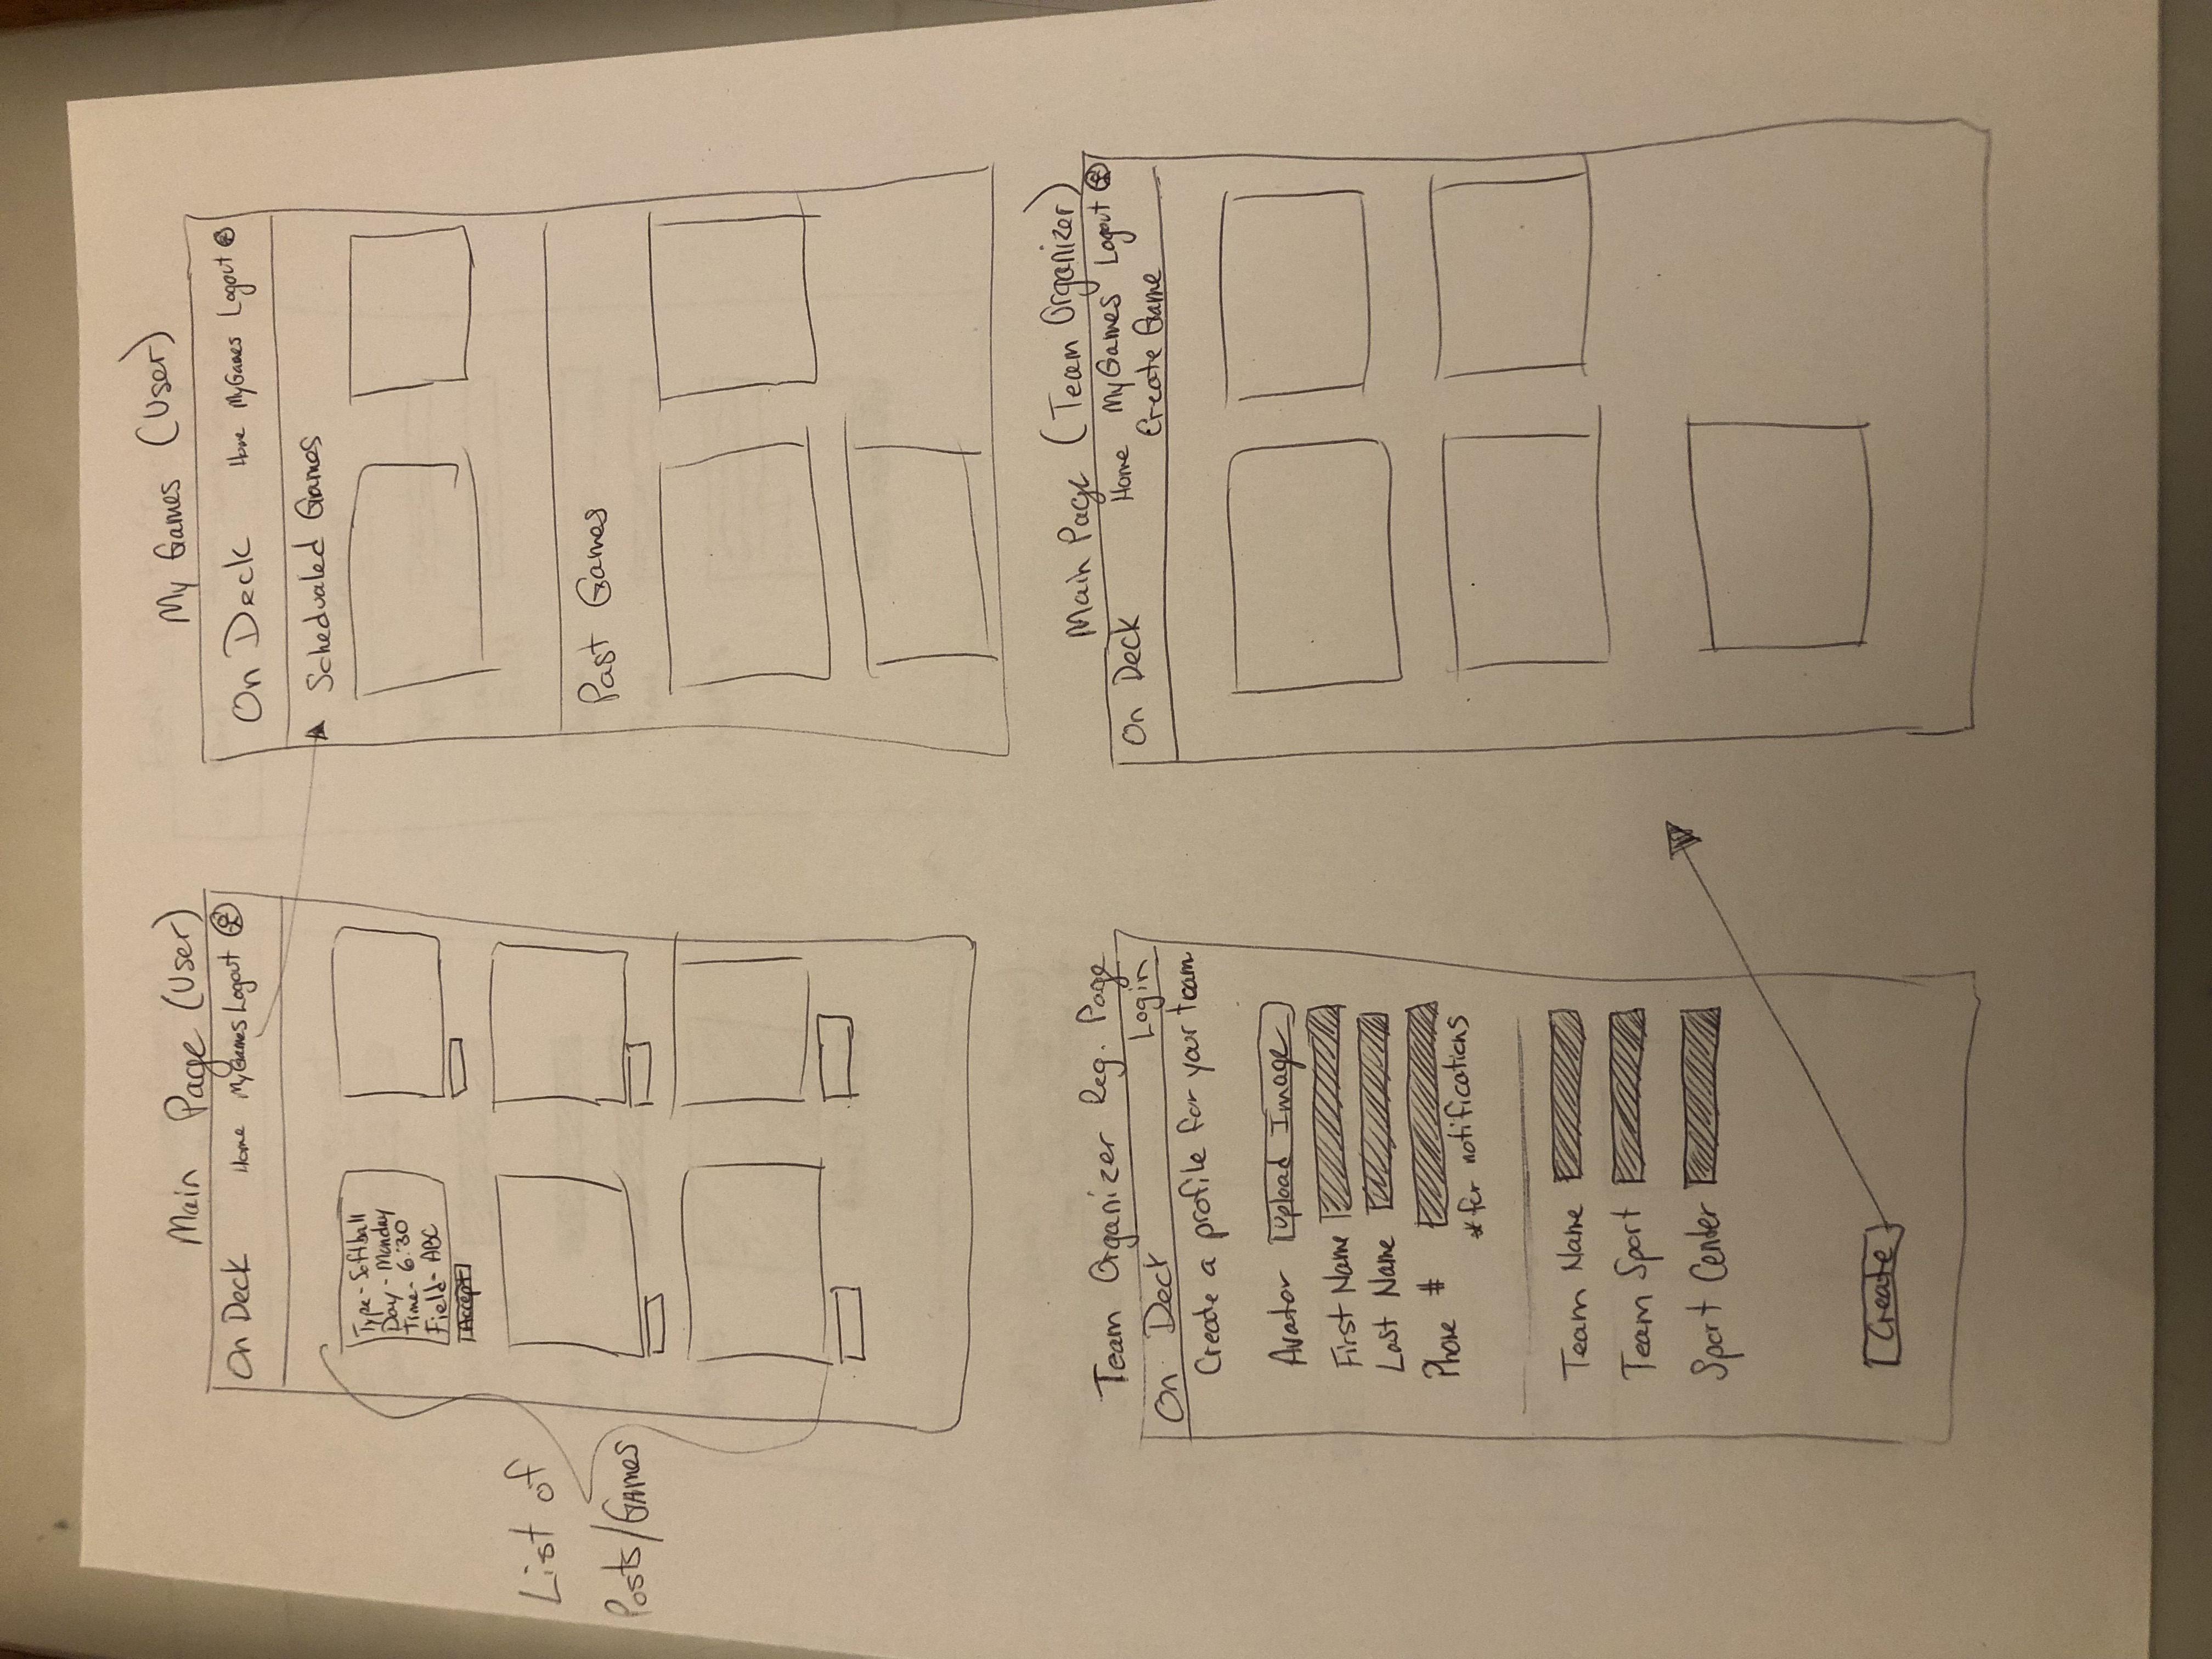 Main Page (User)
On Deck Home MyGames Logout
Type - Softball
Day - Monday
Time - 6:30
Field - ABC
Accept
List of
Posts/Games
My Games (User)
On Deck Home MyGames Logout
Schedualed Games
Past Games
Team Organizer Reg. Page
On Deck Login
Create a profile for your team
Avator Upload Image
First Name
Last Name
Phone #
*for notifications
Team Name
Team Sport
Sport Center
Create
Main Page (Team Organizer)
On Deck Home MyGames Logout
Create Game